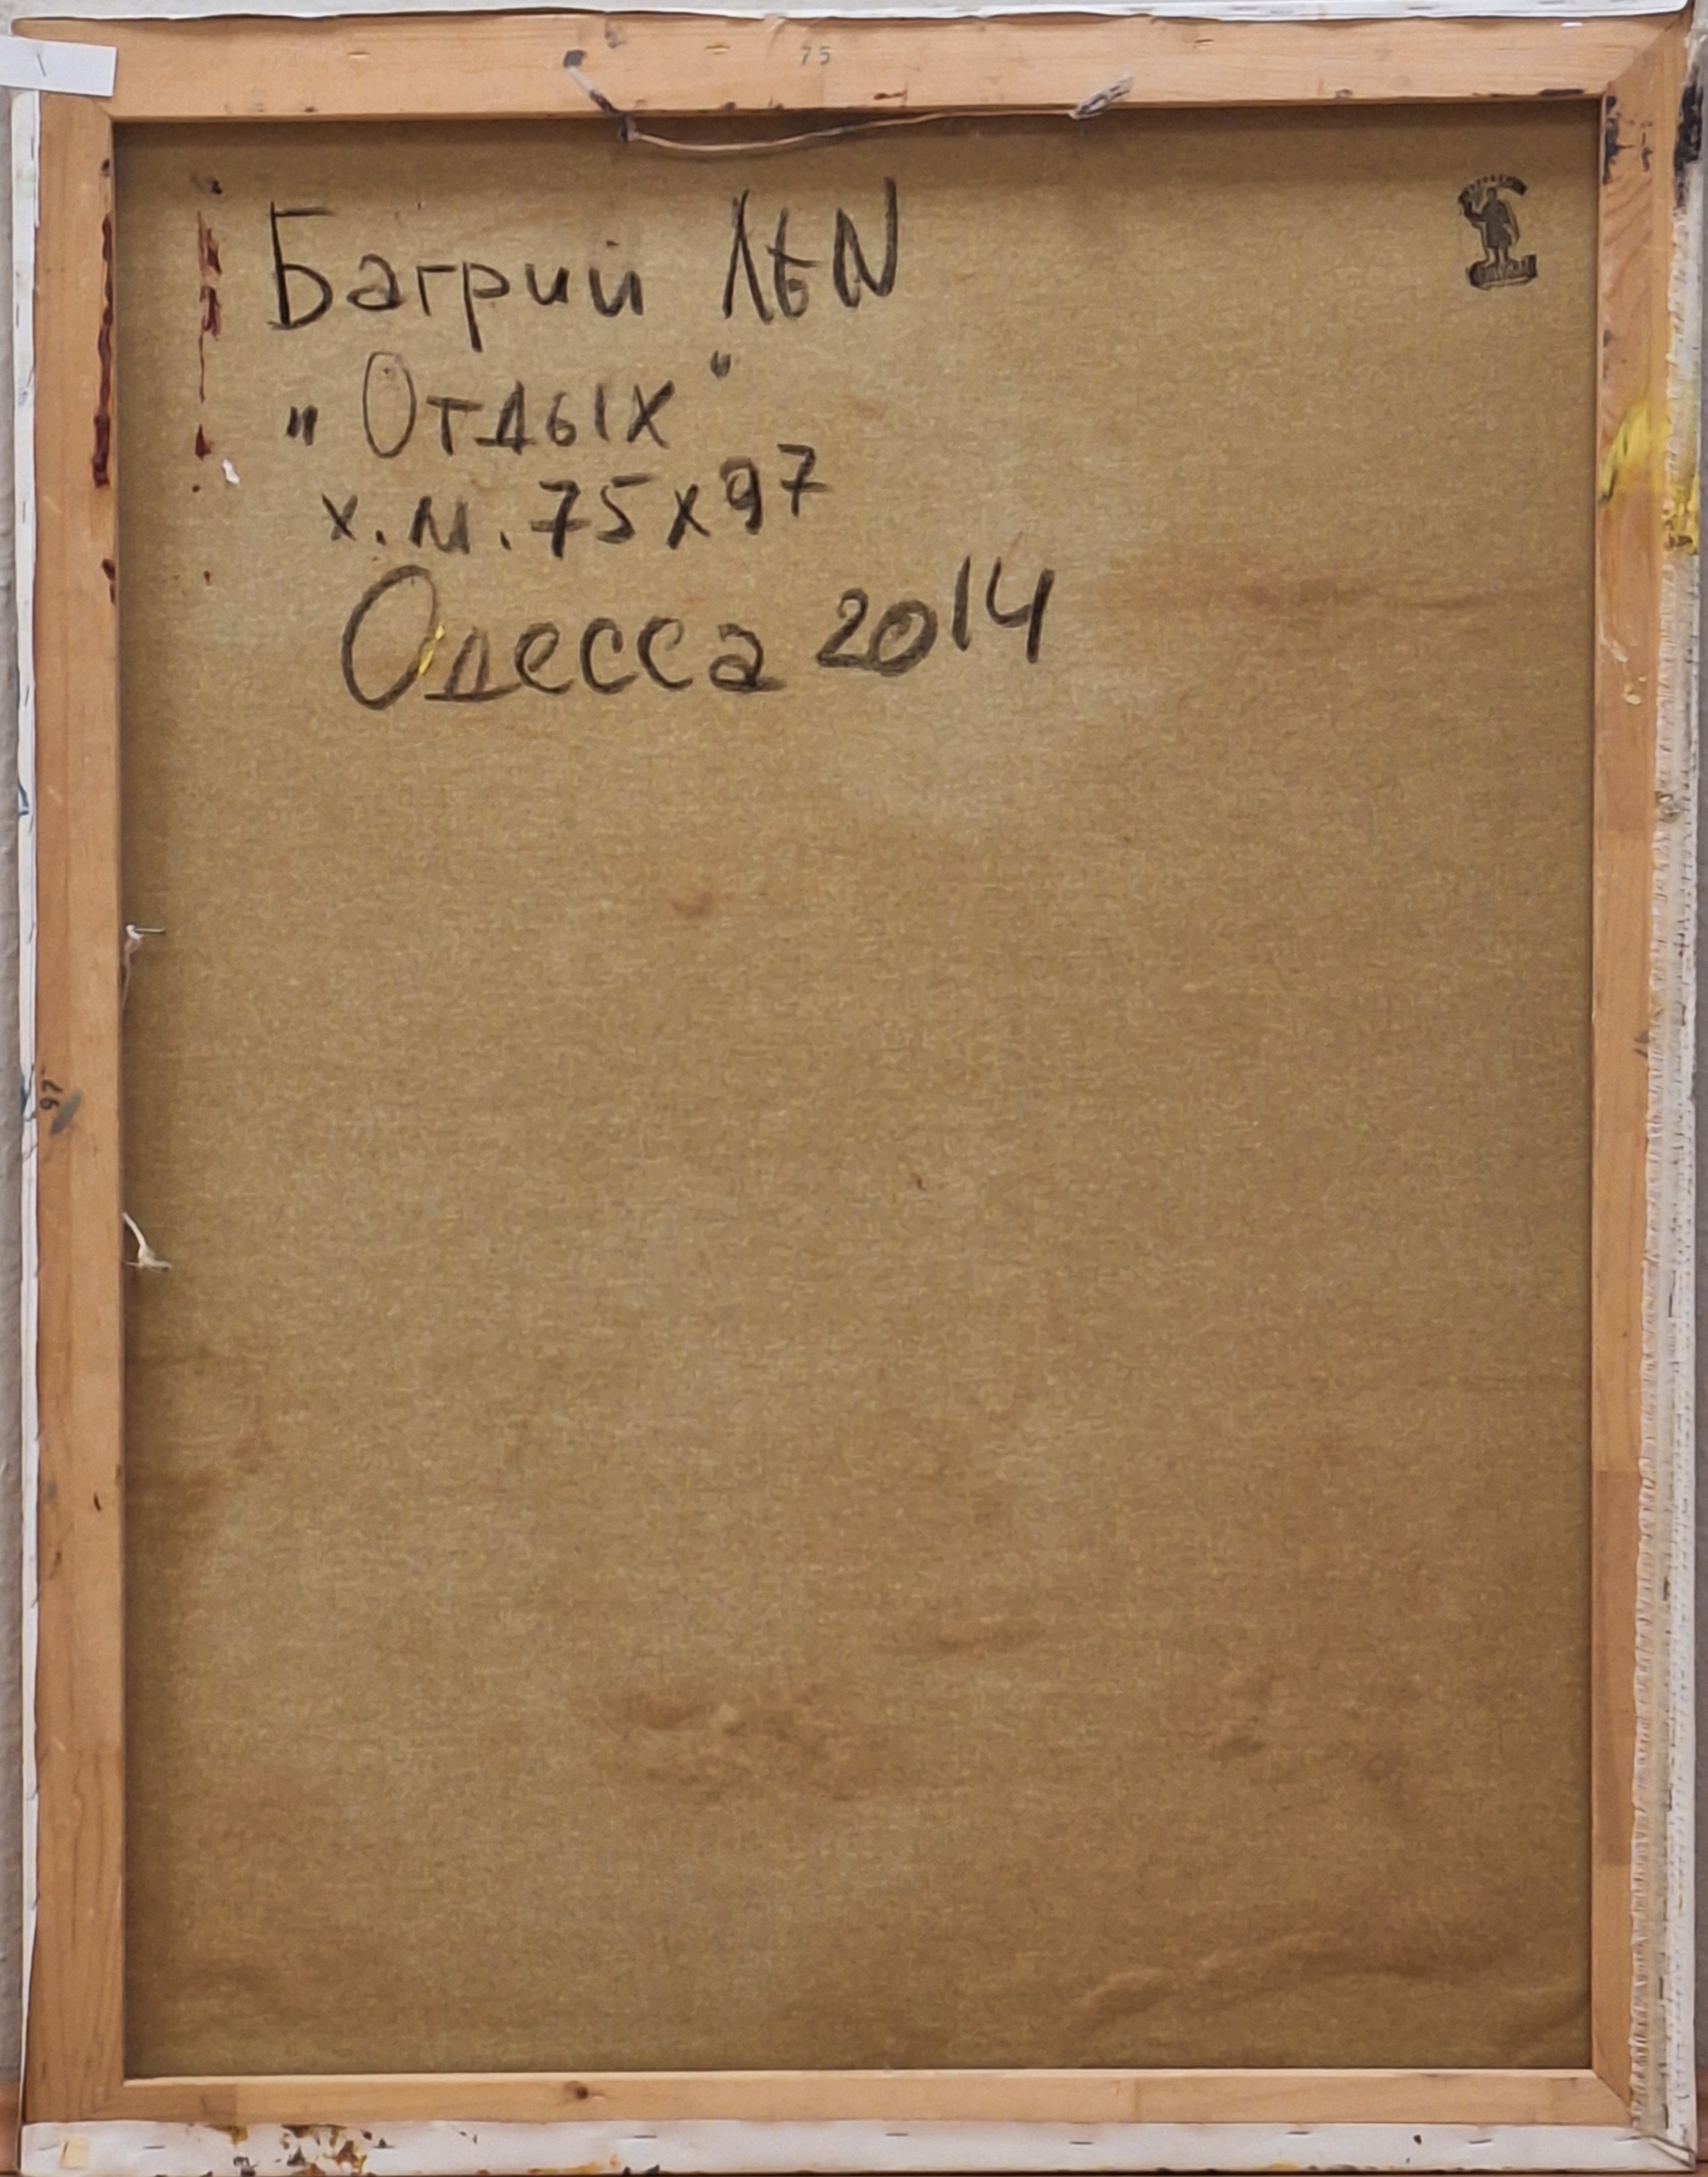 75
Багрий ЛЕN
„Отдых"
х.м. 75х97
Одесса 2014
97